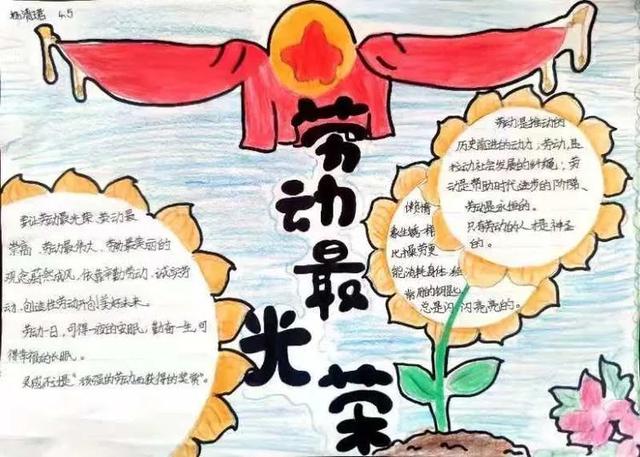 4.5
劳动最光荣
要让劳动最光荣、劳动最
崇高、劳动最伟大、劳动最美丽的
观念蔚然成风，依靠辛勤劳动、诚实劳
动、创造性劳动开创美好未来。
劳动一日，可得一夜的安眠，勤劳一生，可
得幸福的长眠。
灵感不过是“顽强的劳动而获得的奖赏”。
劳动是推动的
历史前进的动力；劳动，是
拉动社会发展的纤绳；劳
动是帮助时代进步的阶梯、
劳动是永恒的。
只有劳动的人才是神圣
的。
懒惰
象生锈一样
比操劳更
能消耗身体，经
常用的钥匙
总是闪闪亮亮的。